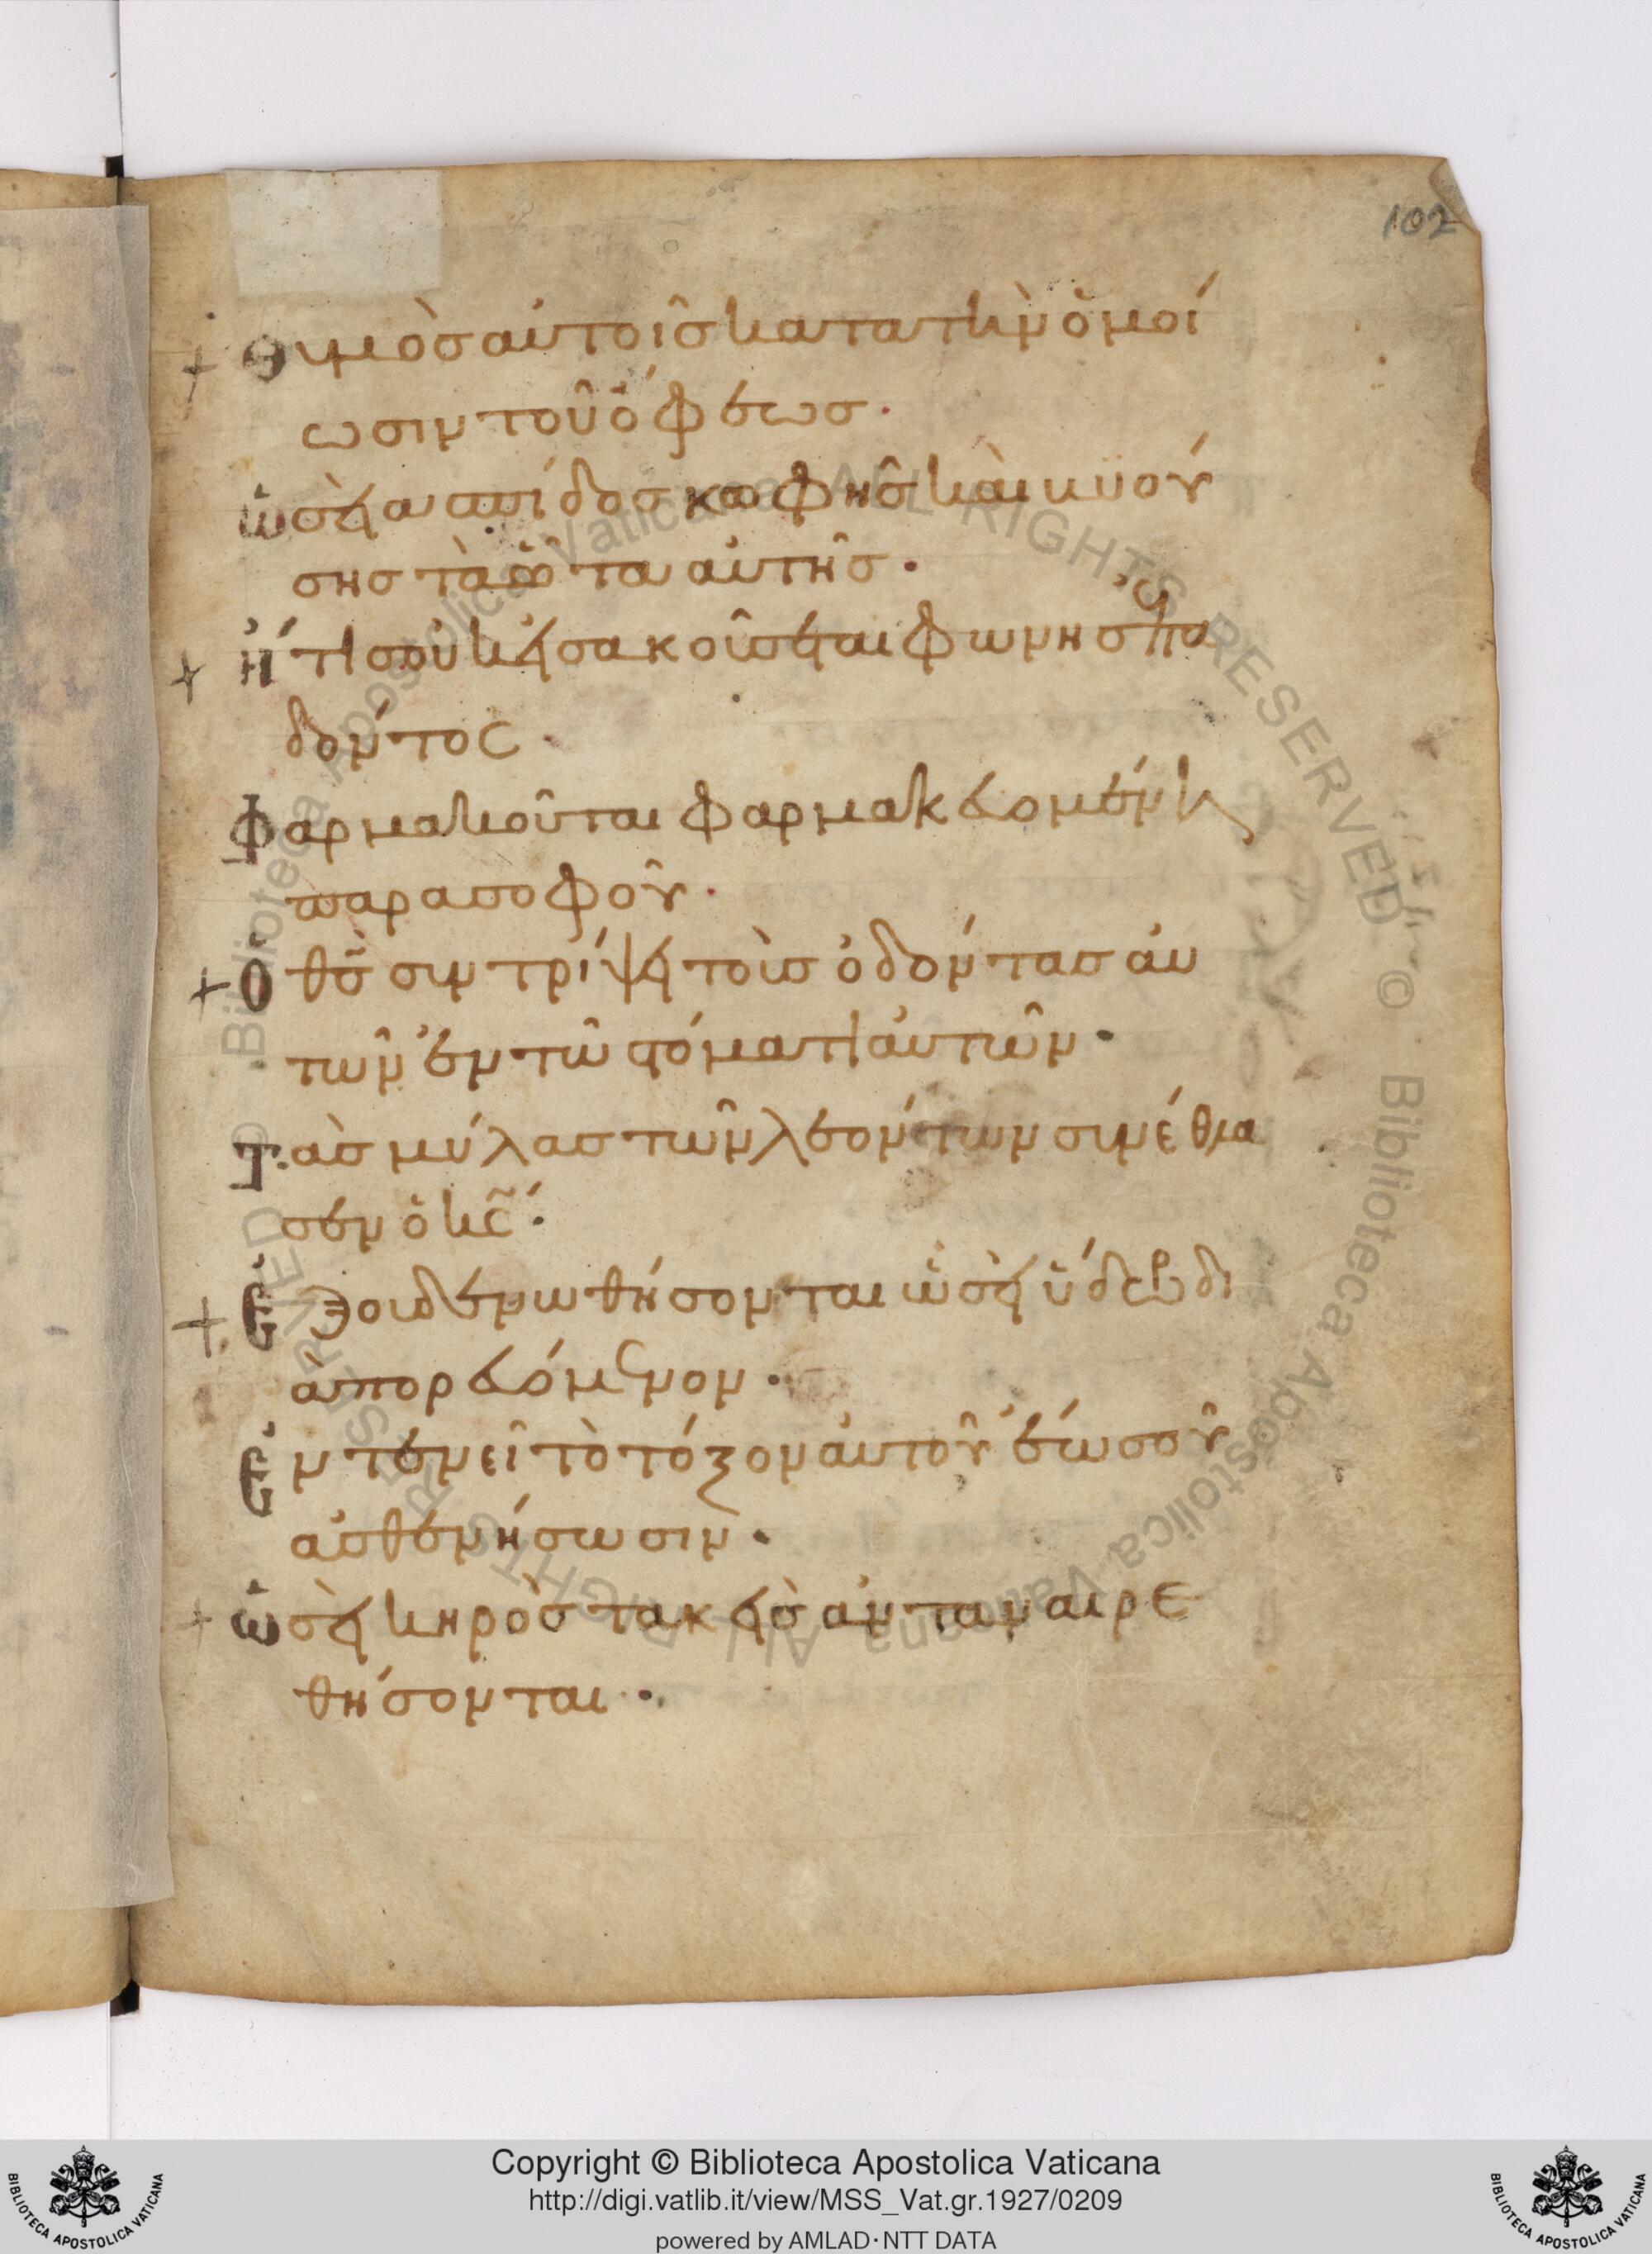 102
Θυμὸσ αὐτοῖσ κατα τὴν ὁμοί
ωσιν τοῦ ὄφεωσ.
ὡσεὶ ασπίδοσ κωφῆσ καὶ κϋού
σησ τὰ ὦτα αὐτῆσ.
ἥτισ οὐκ εἰσακούσεται φωνησ ἐπα
δόντοσ.
Φαρμακοῦται φαρμακευομένη
παρα σοφοῦ.
Ὁ θς̃ συντρίψει τοὺσ ὀδόντασ αὐ
τῶν ἐν τῶ στόματι αὐτῶν.
Τὰσ μύλασ τῶν λεόντων συνέθλα
σεν ὁ κς̃.
Ἐξουδενωθήσονται ὡσεὶ ὕδωρ δι
ὰπορευόμενον.
Ἐντενεῖ τὸ τόξον αὐτοῦ ἕωσ οὗ
ἀσθενήσωσιν.
Ὡσεὶ κηρὸσ τακεὶσ ἀνταναιρε
θήσονται.
Copyright © Biblioteca Apostolica Vaticana
http://digi.vatlib.it/view/MSS_Vat.gr.1927/0209
powered by AMLAD·NTT DATA
BIBLIOTECA APOSTOLICA VATICANA
BIBLIOTECA APOSTOLICA VATICANA
Biblioteca Apostolica Vaticana ALL RIGHTS RESERVED © Biblioteca Apostolica Vaticana ALL RIGHTS RESERVED ©